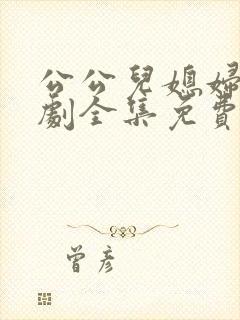 公公兒媳婦
劇全集免費
曾彥